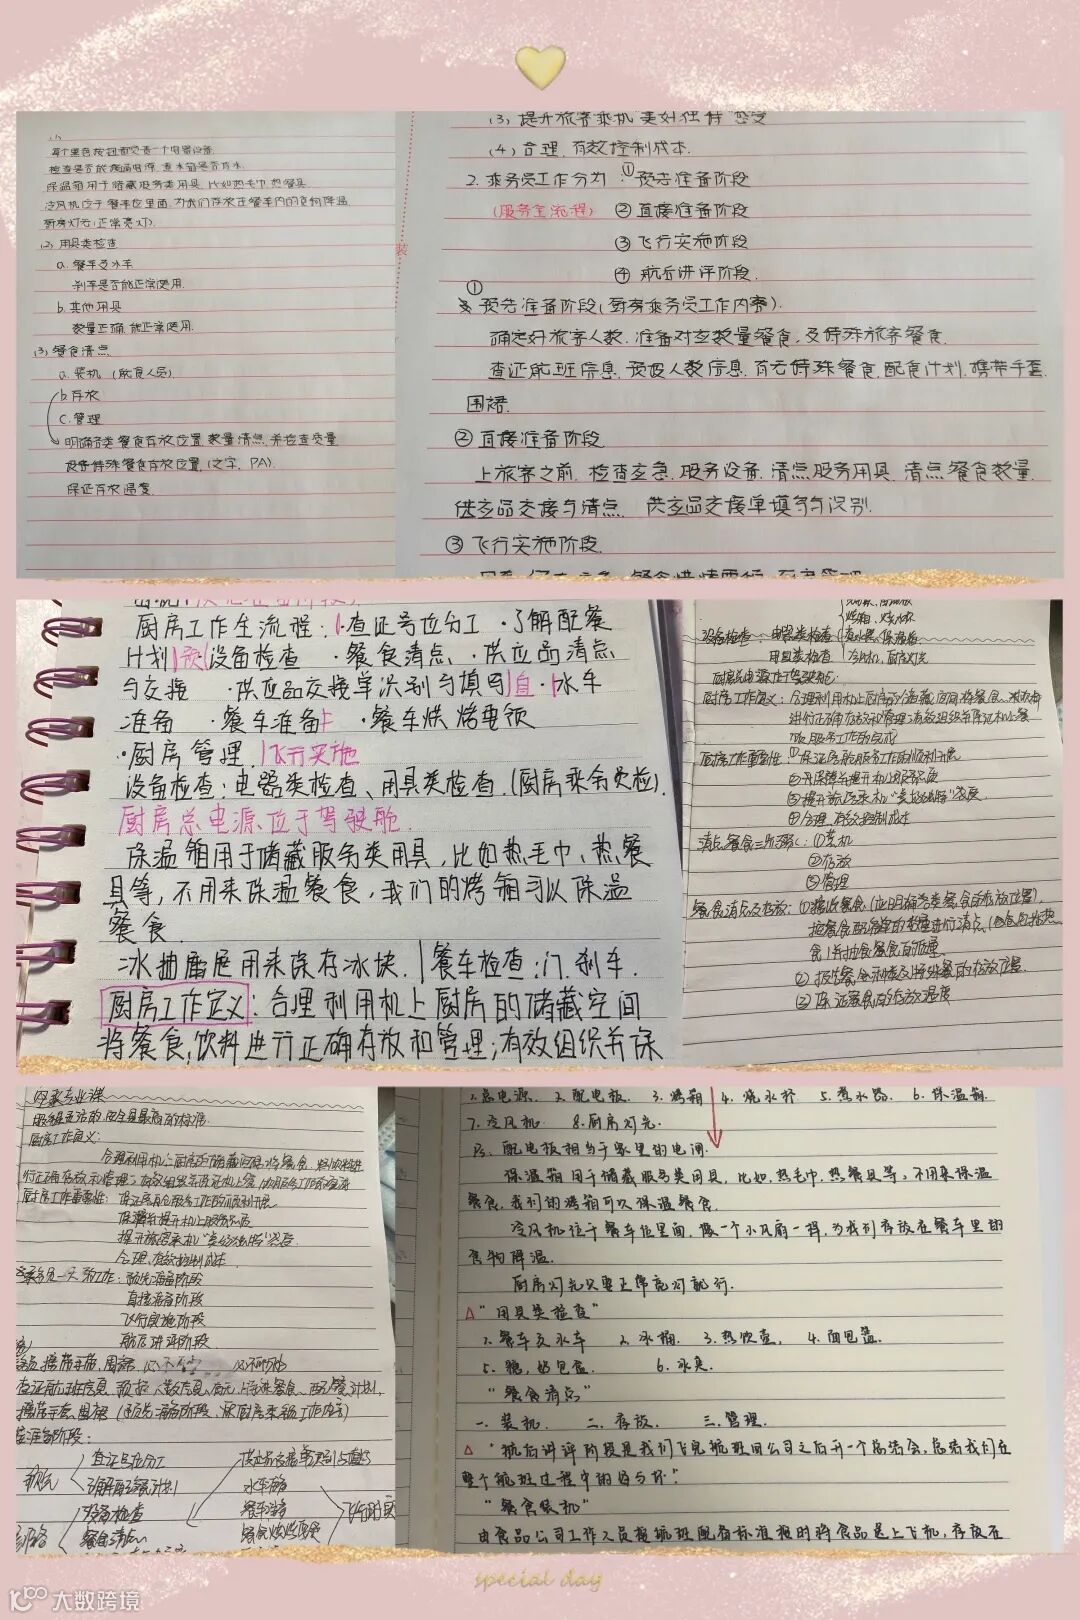 每个黑色按钮都负责一个电器设备.
检查是否能接通电源,查水箱是否有水.
保温箱用于储藏服务类用具,比如热毛巾,热餐具.
冷风机位于餐车位里面,为我们存放在餐车内的食物降温
厨房灯光(正常亮灯).
(2) 用具类检查
a. 餐车及水车
刹车是否能正常使用.
b. 其他用具
数量正确,能正常使用.
(3) 餐食清点
a. 装机 (配食人员)
b. 存放
c. 管理
明确各类餐食存放位置,数量清点,并检查质量
报告特殊餐食存放位置,(文字, PA).
保证存放温度.
(3) 提升旅客乘机"美好独特"感受
(4) 合理.有效控制成本.
2. 乘务员工作分为: ①预先准备阶段
(服务全流程) ②直接准备阶段
③飞行实施阶段
④航后讲评阶段.
① 预先准备阶段(厨房乘务员工作内容).
确定好旅客人数.准备对应数量餐食,及特殊旅客餐食.
查证航班信息,预报人数信息,有无特殊餐食,配食计划,携带手套
围裙.
②直接准备阶段
上旅客之前,检查应急,服务设备.清点服务用具,清点餐食数量
供应品交接与清点. 供应品交接单填写与识别.
③飞行实施阶段.
装
厨房工作全流程:1·查证号位分工 ·了解配餐
计划|预|设备检查 ·餐食清点 ·供应品清点
与交接 ·供应品交接单识别与填写|直·水车
准备 ·餐车准备 ·餐车烘烤电领
·厨房管理 |飞行实施
设备检查:电器类检查、用具类检查(厨房乘务员检).
厨房总电源位于驾驶舱.
保温箱用于储藏服务类用具,比如热毛巾,热餐
具等,不用来保温餐食,我们的烤箱可以保温
餐食
冰抽屉是用来保存冰块.|餐车检查:门.刹车.
厨房工作定义:合理利用机上厨房的储藏空间
将餐食,饮料进行正确存放和管理;有效组织并保
烤箱,烧水杯
设备检查: 电器类检查 煮水器,保温箱
用具类检查 冷风机,厨房灯光
厨房总电源位于驾驶舱
厨房工作定义:合理利用机上厨房的储藏空间将餐食、饮料
进行正确存放和管理;有效组织并保证机上餐
饮服务工作的完成
厨房工作重要性 ①保证客舱服务工作的顺利开展
②保障并提升机上服务品质
③提升旅客乘机"美好独特"感受.
④合理,有效控制成本
清点餐食三步骤:①装机
②存放
③管理
餐食清点及存放:①接收餐食(应明确各类餐食的存放位置),
②报告餐食种类及特殊餐的存放位置
③保证餐食的存放温度
空乘专业课
厨房工作定义:
合理利用机上厨房的储藏空间,将餐食、饮料进
行正确存放和管理;有效组织并保证机上餐饮服务工作的完成
厨房工作重要性:保证客舱服务工作的顺利开展
保障并提升机上服务品质
提升旅客乘机"美好独特"感受.
合理、有效控制成本
乘务员一天的工作:预先准备阶段
直接准备阶段
飞行实施阶段
航后讲评阶段.
查证航班信息、预报人数信息、有无特殊餐食、配餐计划,
携带手套、围裙
准备阶段:
查证号位分工
了解配餐计划
设备检查
餐食清点
水车准备
餐车准备
1.总电源. 2.配电板. 3.烤箱 4.烧水杯 5.煮水器. 6.保温箱.
7.冷风机 8.厨房灯光.
Ps. 配电板相当于家里的电闸.
保温箱用于储藏服务类用具,比如,热毛巾,热餐具等,不用来保温
餐食,我们的烤箱可以保温餐食.
冷风机位于餐车位里面,像一个小风扇一样,为我们存放在餐车里的
食物降温.
厨房灯光只要正常亮灯就行.
△"用具类检查"
1.餐车及水车 2.冰桶. 3.热饮壶. 4.面包篮.
5.糖,奶包盒. 6.冰夹.
"餐食清点"
一.装机. 二.存放. 三.管理.
△"航后讲评阶段是我们飞完航班回公司之后开一个总结会,总结我们在
整个航班过程中的好与坏."
"餐食装机"
由食品公司工作人员按航班配备标准按时将食品送上飞机,存放在
special day
大数跨境